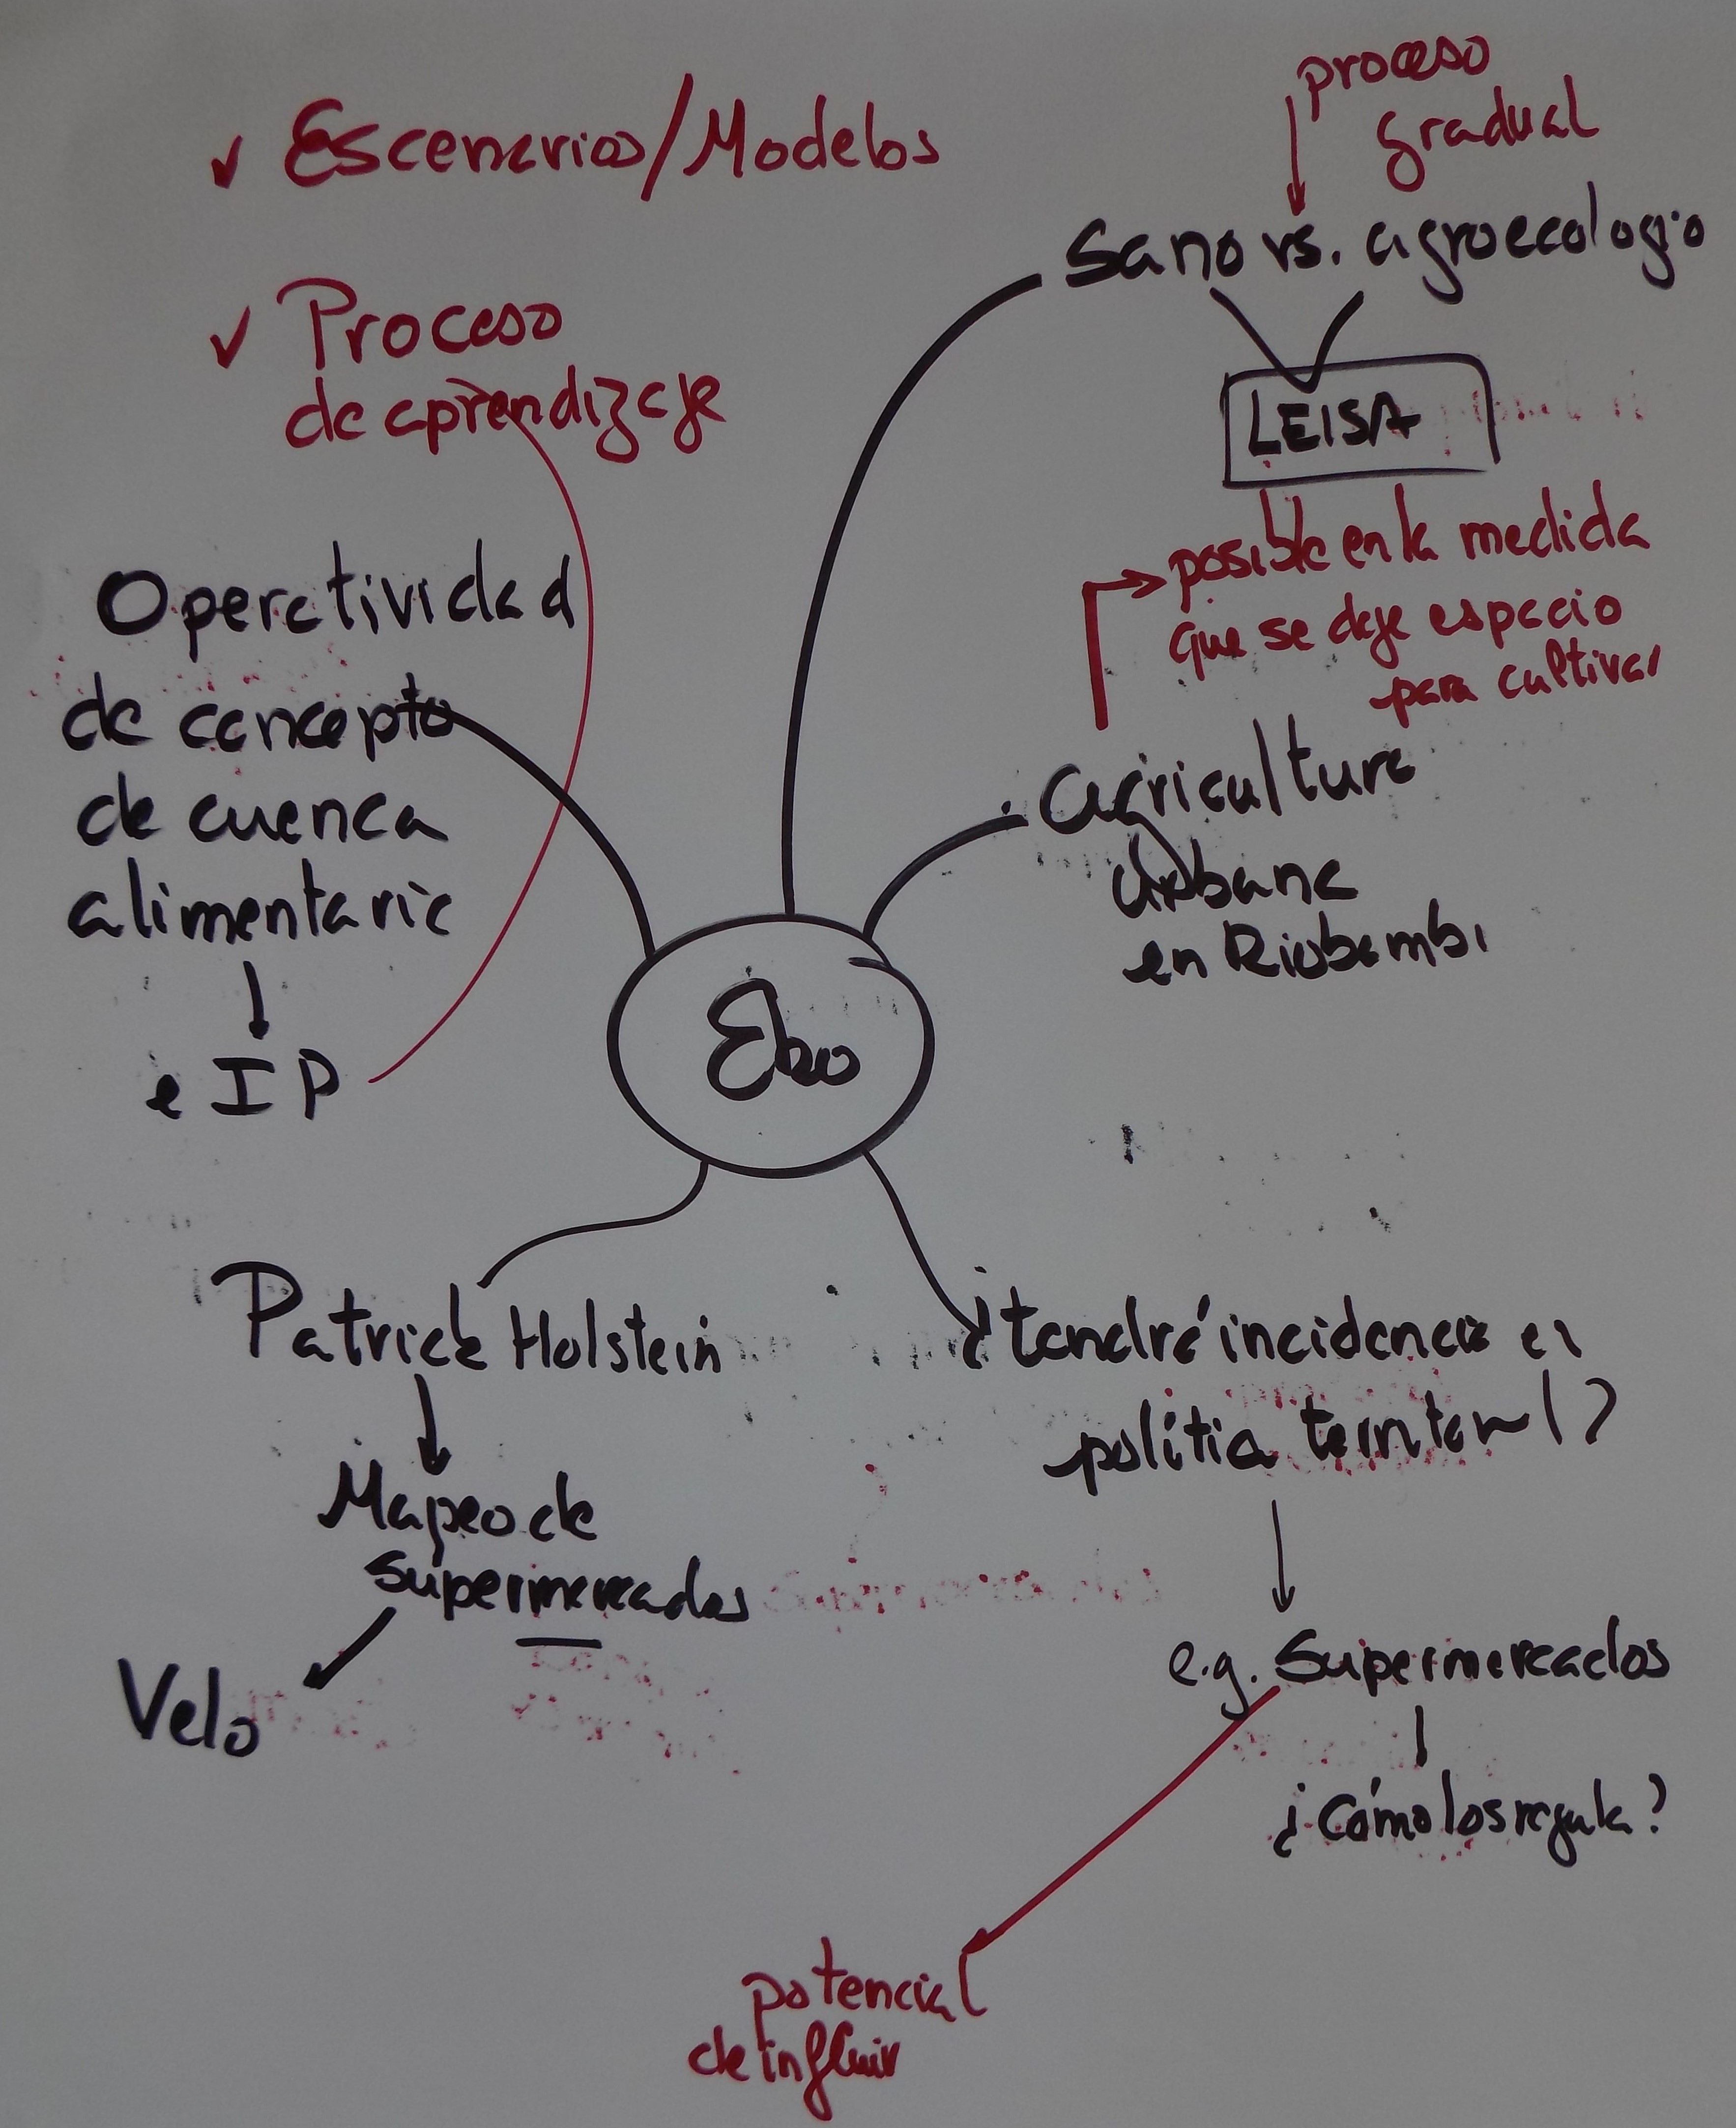 ✓ Escenarios/Modelos
✓ Proceso
de aprendizaje
proceso
gradual
Sano vs. agroecologia
LEISA
posible en la medida
que se deje espacio
para cultivar
Operatividad
de concepto
de cuenca
alimentaria
e IP
agricultura
urbana
en Riobamba
Patrick Holstein
Mapeo de
supermercados
Velo
¿tendrá incidencia en
polítia territorial?
e.g. Supermercados
¿Cómo los regula?
potencial
de influir